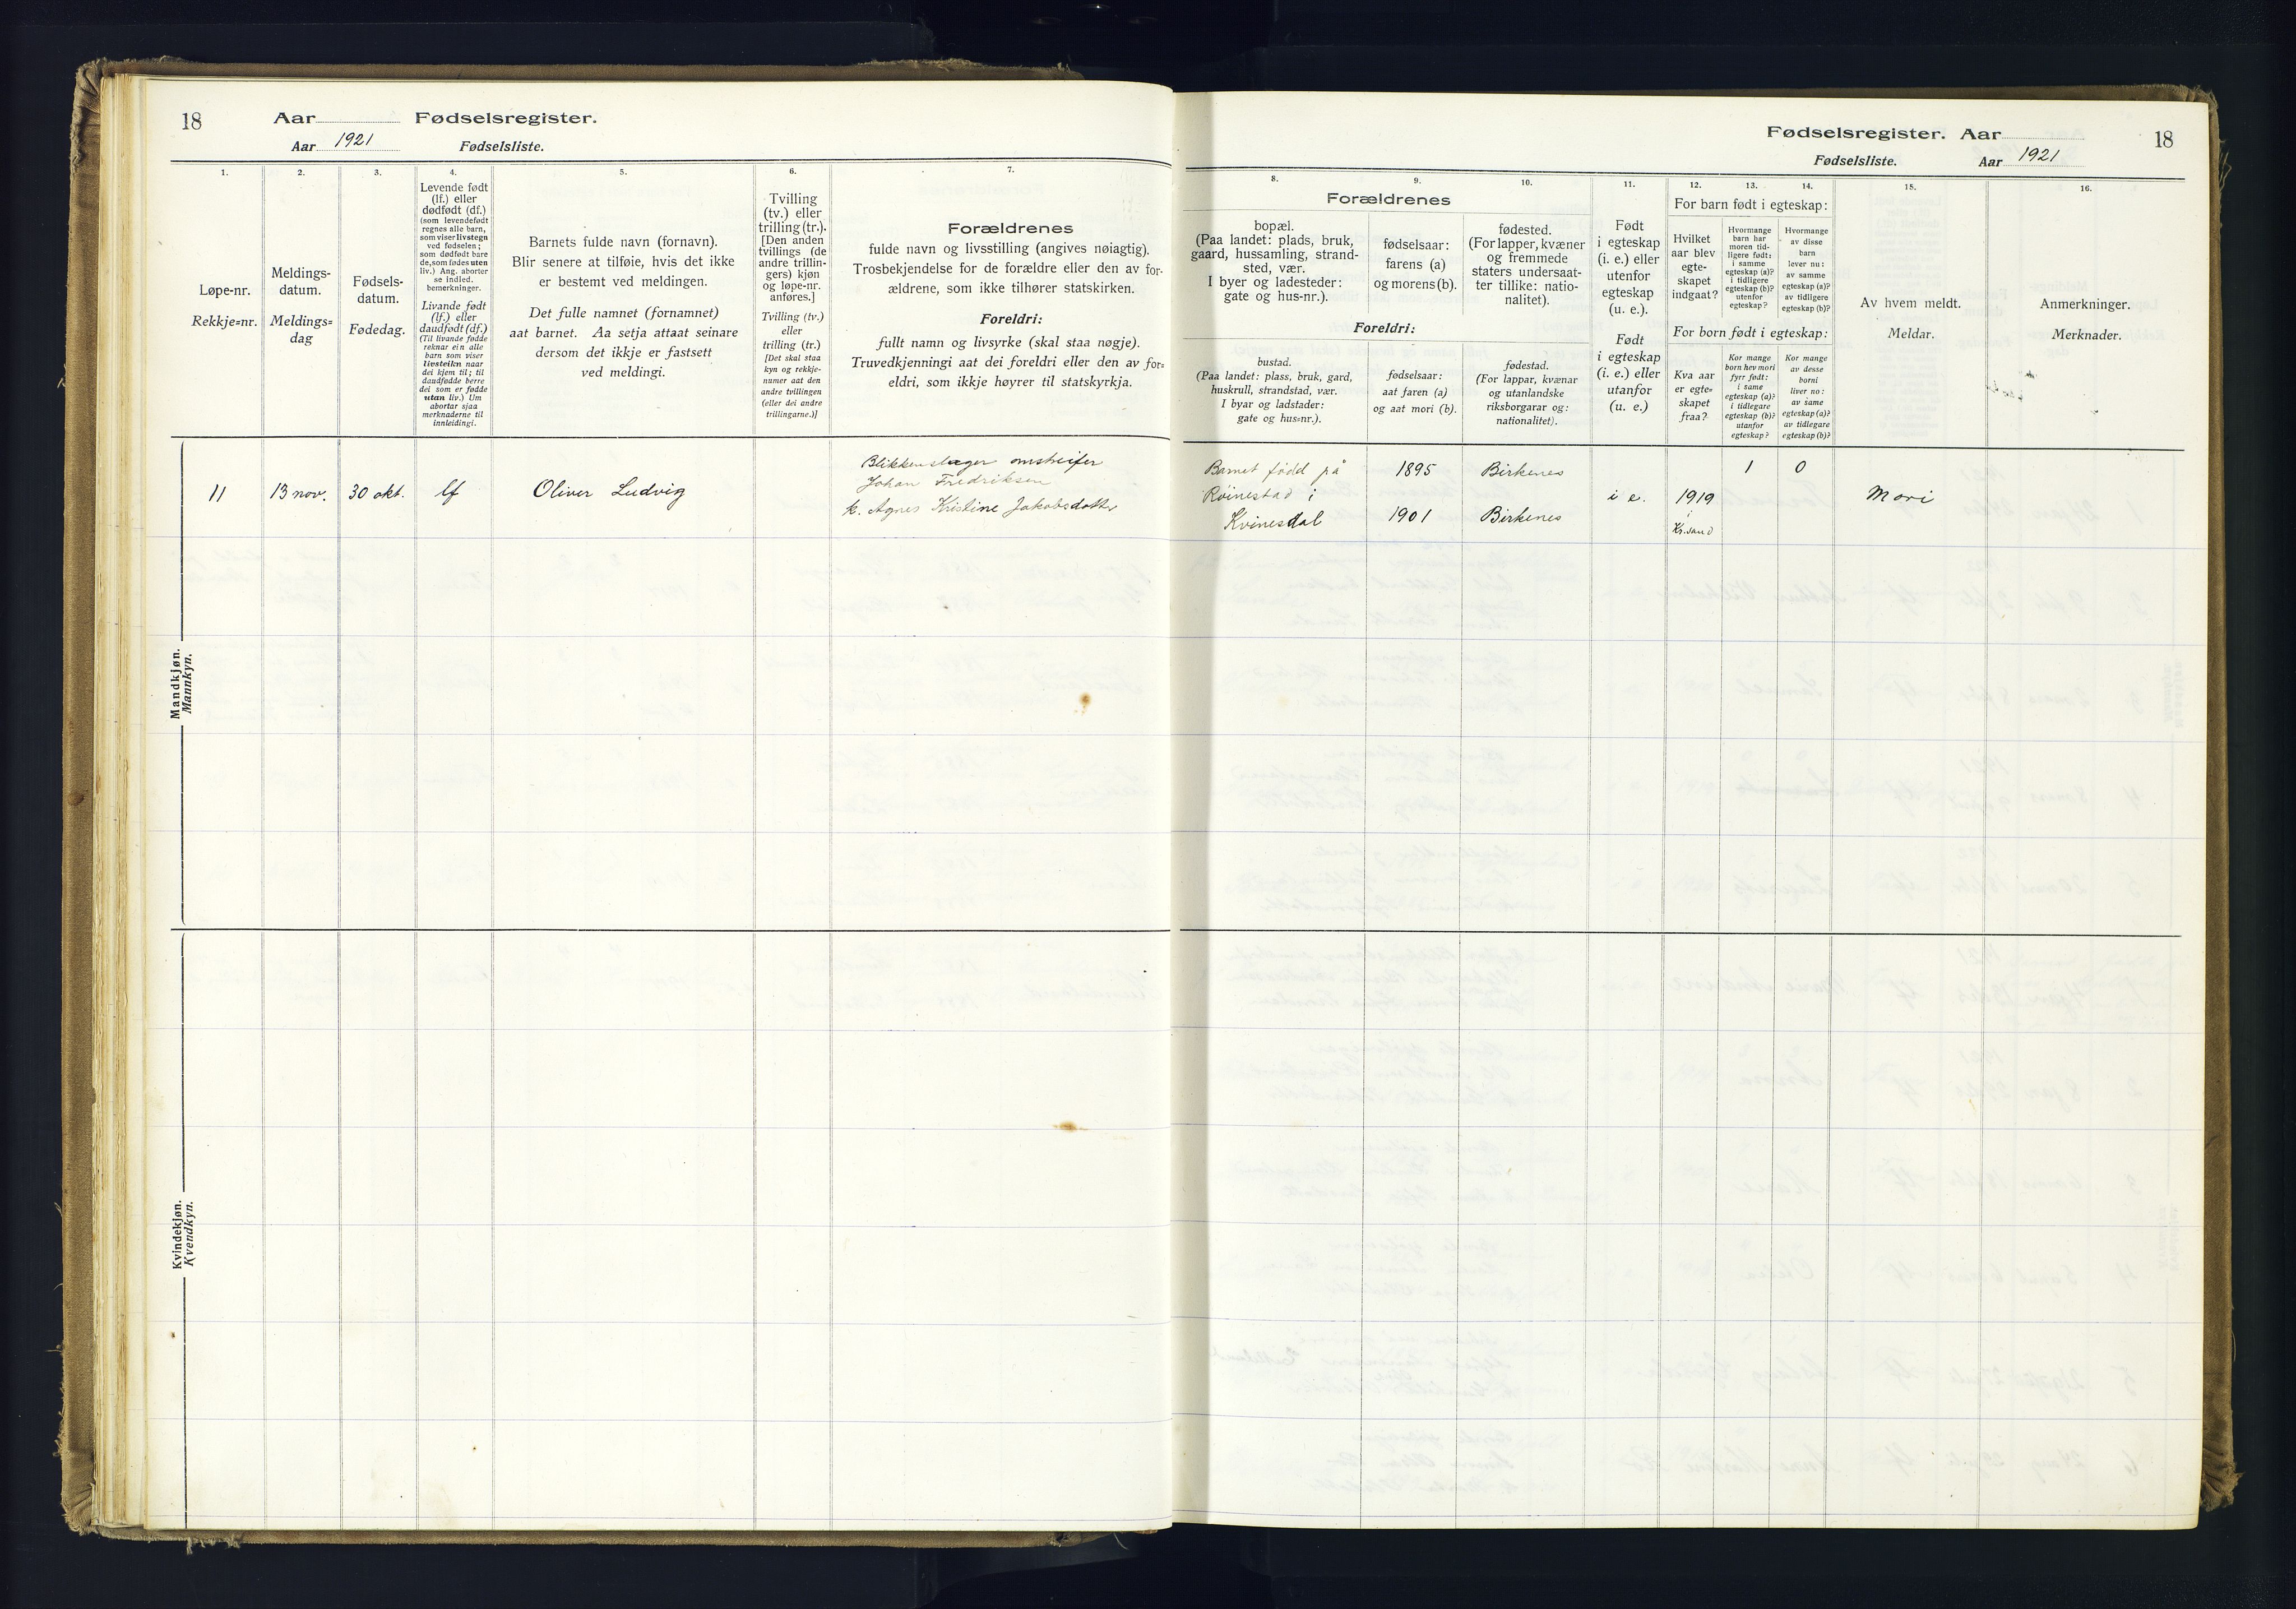 18
Aar Fødselsregister.
Aar 1921 Fødselsliste.
1.
Løpe-nr.
Rekkje-nr.
2.
Meldings-
datum.
Meldings-
dag
3.
Fødsels-
datum.
Fødedag.
4.
Levende født
(lf.) eller
dødfødt (df.)
(som levendefødt
regnes alle barn,
som viser livstegn
ved fødselen;
som dødfødt bare
de, som fødes uten
liv.) Ang. aborter
se indled.
bemerkninger.
Livande født
(lf.) eller
daudfødt (df.)
(Til livande fødde
reknar ein alle
barn som viser
livsteikn naar
dei kjem til; til
daudfødde berre
dei som er fødde
utan liv.) Um
abortar sjaa
merknaderne til
innleidingi.
5.
Barnets fulde navn (fornavn).
Blir senere at tilføie, hvis det ikke
er bestemt ved meldingen.
Det fulle namnet (fornamnet)
aat barnet. Aa setja attaat seinare
dersom det ikkje er fastsett
ved meldingi.
6.
Tvilling
(tv.) eller
trilling (tr.).
[Den anden
tvillings (de
andre trillin-
gers) kjøn
og løpe-nr.
anføres.]
Tvilling (tv.)
eller
trilling (tr.)
[Det skal staa
kyn og rekkje-
numer aat den
andre tvillingen
(eller dei andre
trillingarne.)]
7.
Forældrenes
fulde navn og livsstilling (angives nøiagtig).
Trosbekjendelse for de forældre eller den av for-
ældrene, som ikke tilhører statskirken.
Foreldri:
fullt namn og livsyrke (skal staa nøgje).
Truvedkjenningi aat dei foreldri eller den av for-
eldri, som ikkje høyrer til statskyrkja.
Mandkjøn.
Mannkyn.
11 13 nov. 30 okt. lf Oliver Ludvig
Blikkenslager omstreifer
Johan Fredriksen
k. Agnes Kristine Jakobsdotter
Kvindekjøn.
Kvendkyn.
Fødselsregister. Aar
18
Fødselsliste. Aar 1921
8.
9.
10.
Forældrenes
bopæl.
(Paa landet: plads, bruk,
gaard, hussamling, strand-
sted, vær.
I byer og ladesteder:
gate og hus-nr.).
fødselsaar:
farens (a)
og morens (b).
fødested.
(For lapper, kvæner
og fremmede
staters undersaat-
ter tillike: natio-
nalitet).
Foreldri:
bustad.
(Paa landet: plass, bruk, gard,
huskrull, strandstad, vær.
I byar og ladstader:
gate og hus-nr.).
fødselsaar:
aat faren (a)
og aat mori (b).
fødestad.
(For lappar, kvænar
og utanlandske
riksborgarar og:
nationalitet).
11.
Født
i egteskap
(i. e.) eller
utenfor
egteskap
(u. e.).
Født
i egteskap
(i. e.) eller
utanfor
(u. e.)
12.
13.
14.
For barn født i egteskap:
Hvilket
aar blev
egte-
skapet
indgaat?
Hvormange
barn har
moren tid-
ligere født:
i samme
egteskap (a)?
i tidligere
egteskap (b)?
utenfor
egteskap?
Hvormange
av disse
barn
lever nu:
av samme
egteskap (a)?
av tidligere
egteskap (b)?
For born født i egteskap:
Kva aar
er egte-
skapet
fraa?
Kor mange
born hev mori
fyrr født:
i same
egteskap (a)?
i tidlegare
egteskap (b)?
utanfor
egteskap?
Kor mange
av desse
borni
liver no:
av same
egteskap (a)?
av tidlegare
egteskap (b)?
15.
Av hvem meldt.
Meldar.
16.
Anmerkninger.
Merknader.
Barnet født på
Röinestad i
Kvinesdal
1895 Birkenes
1901 Birkenes
i e.
1919
i
Kr.sand
1 0
Mori